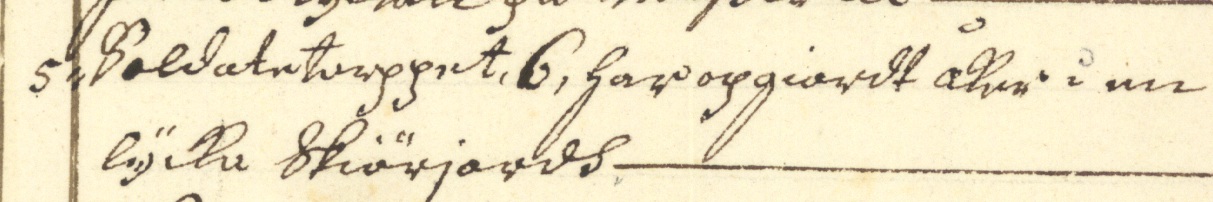 5: Soldatetorppet, 6, har opgiordt åker i en
lÿcka Skiörjords